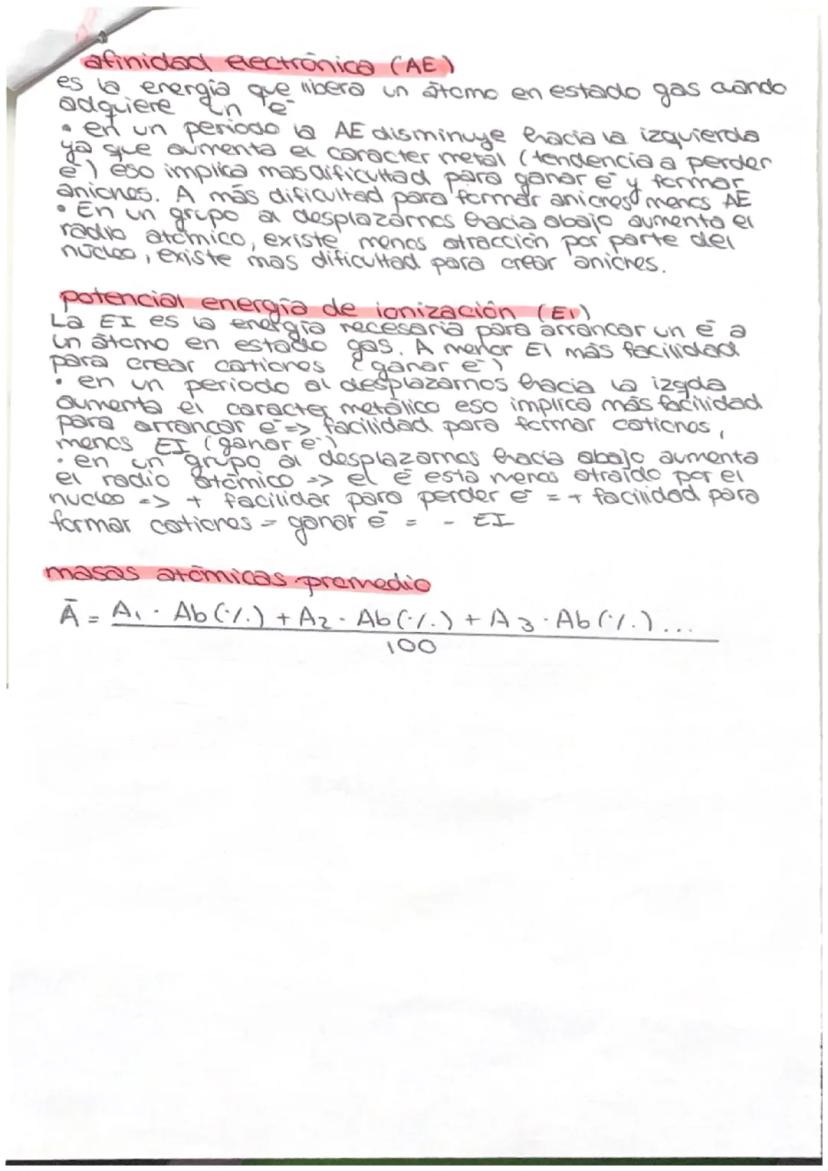 afinidad electrónica (AE)
es la energía que libera un átomo en estado gas cuando
adquiere un e⁻
• en un periodo la AE disminuye hacia la izquierda
ya que aumenta el caracter metal (tendencia a perder
e⁻) eso implica mas dificultad para ganar e⁻ y formar
aniones. A más dificultad para formar aniones menos AE
• En un grupo al desplazarnos hacia abajo aumenta el
radio atómico, existe menos atracción por parte del
núcleo, existe mas dificultad para crear aniones.
potencial energía de ionización (EI)
La EI es la energía necesaria para arrancar un e⁻ a
un átomo en estado gas. A menor EI más facilidad
para crear cationes (ganar e⁻)
• en un periodo al desplazarnos hacia la izqda
aumenta el caracter metálico eso implica más facilidad
para arrancar e⁻ => facilidad para formar cationes,
menos EI (ganar e⁻)
• en un grupo al desplazarnos hacia abajo aumenta
el radio atómico => el e⁻ esta menos atraído por el
nucleo => + facilidar para perder e⁻ = + facilidad para
formar cationes = ganar e⁻ = - EI
masas atómicas promedio
Ā = A₁ · Ab (%) + A₂ · Ab (%) + A₃ · Ab (%) ...
100